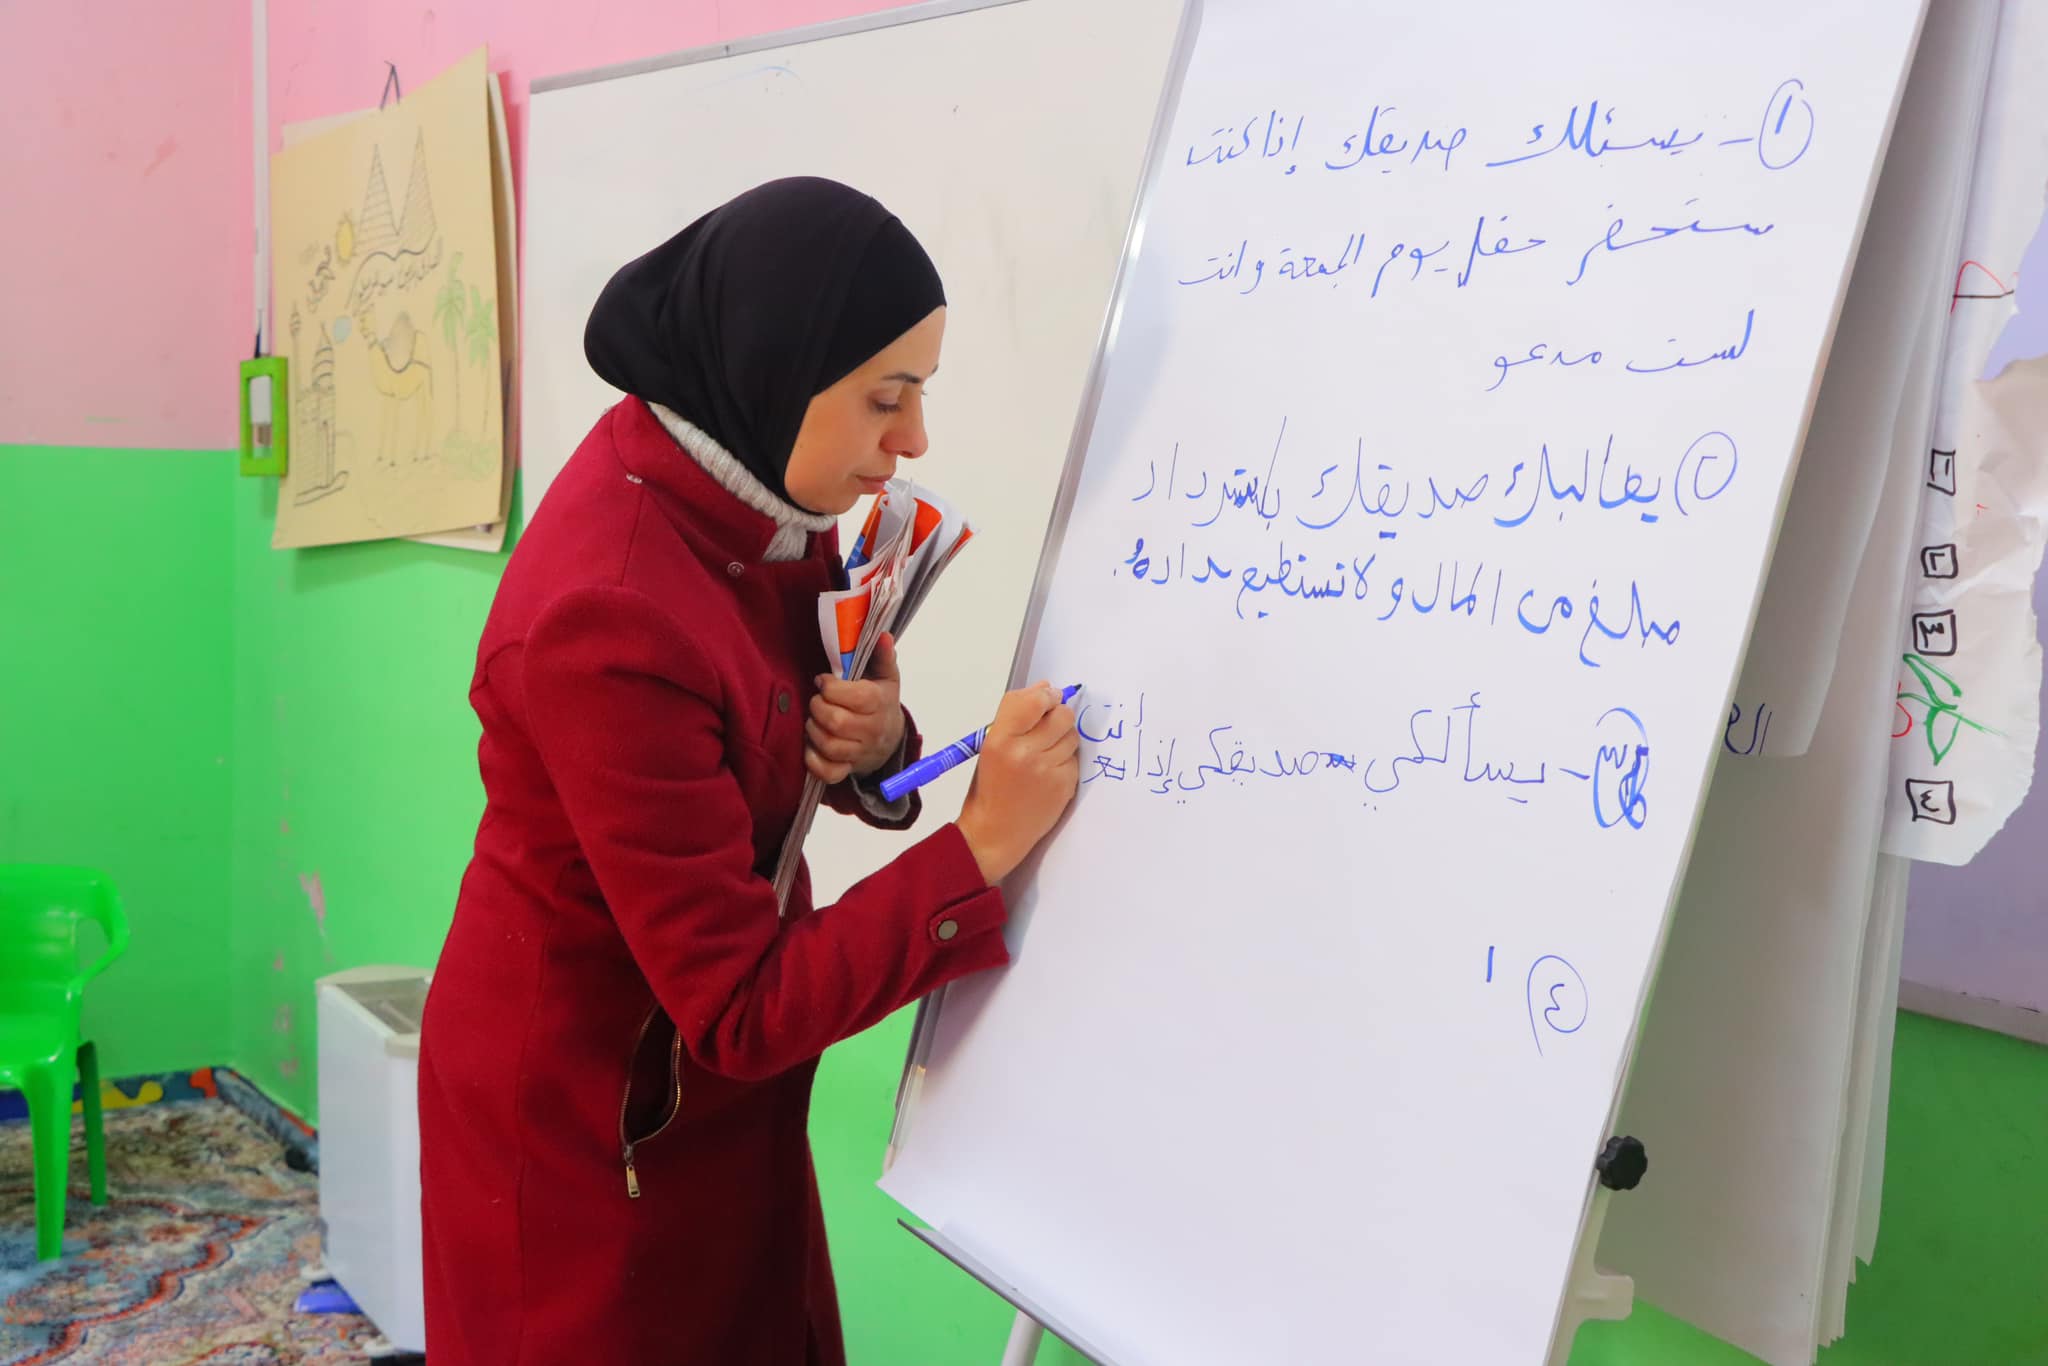 ١ - يسئلك صديقك إذا كنت
ستحضر حفل يوم الجمعة وانت
لست مدعو
٢ يطالبك صديقك باسترداد
مبلغ من المال ولا تستطيع سداده.
٣ - يسألكي صديقكي إذا
أنت
٤ ا
ال